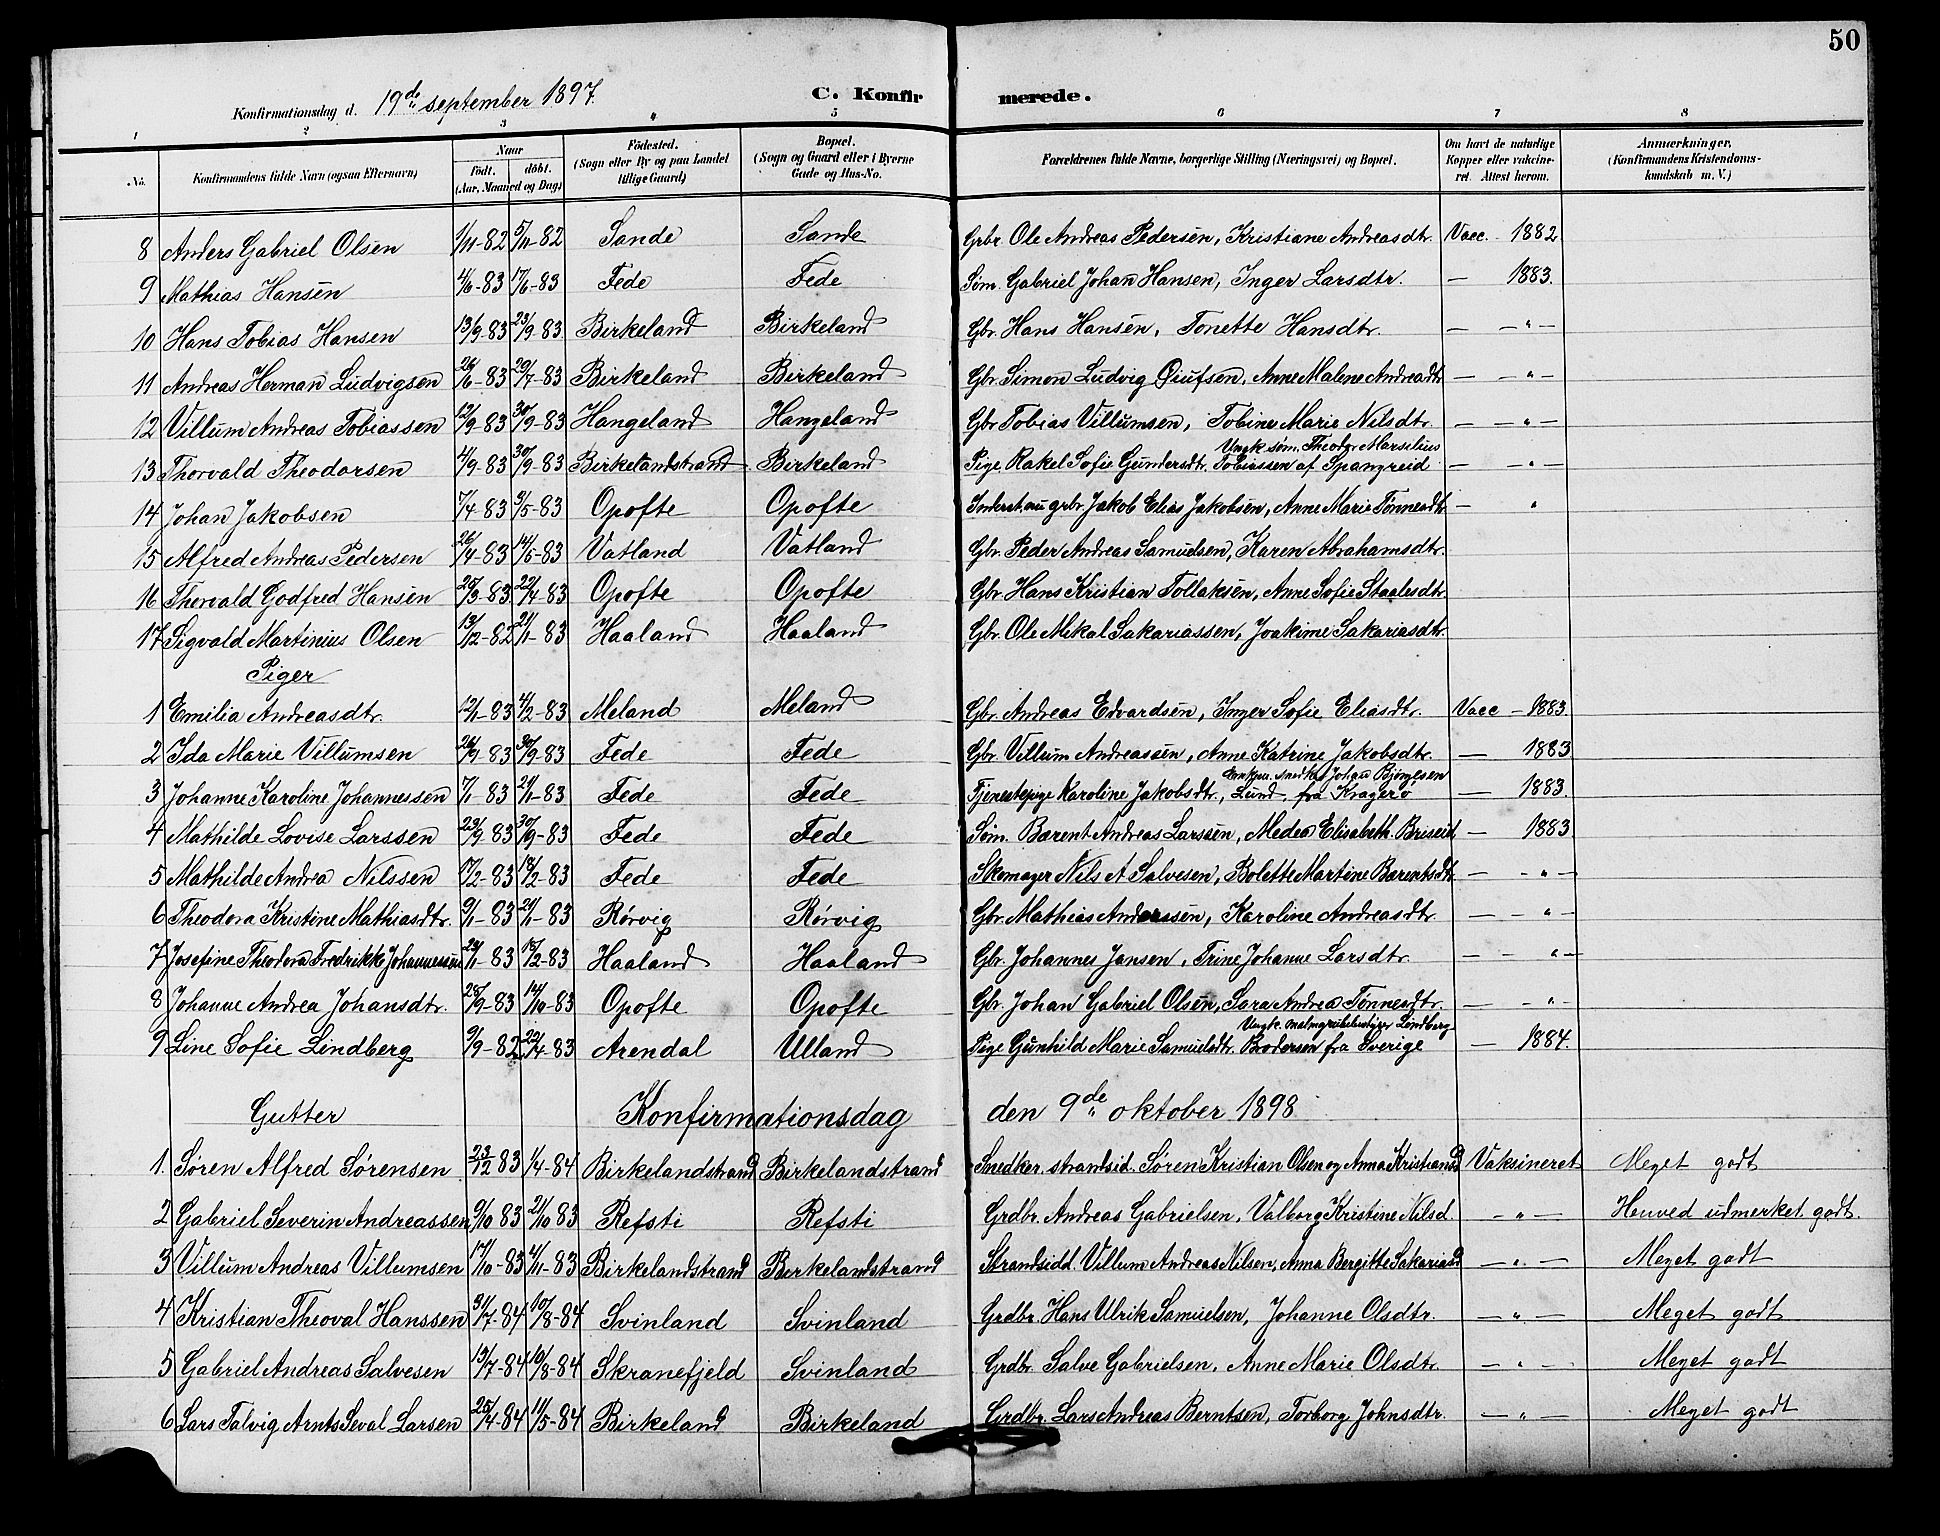 50
Konfirmationsdag d. 19de september 1897. C. Konfirmerede.
1 2 3 4 5 6 7 8
No. Konfirmandens fulde Navn (ogsaa Efternavn) Naar født. døbt. (Aar, Maaned og Dag) Fødested. (Sogn eller By og paa Landet tillige Gaard) Bopæl. (Sogn og Gaard eller i Byerne Gade og Hus-No. Forældrenes fulde Navne, borgerlige Stilling (Næringsvei) og Bopæl. Om havt de naturlige Kopper eller vaccineret. Attest herom. Anmærkninger, (Konfirmandens Kristendomskundskab m. V.)
8 Anders Gabriel Olsen 1/11-82 5/11-82 Sande Sande Grbr. Ole Andreas Pedersen, Kristiane Andreasdtr. Vacc. 1882
9 Mathias Hansen 4/6-83 17/6-83 Fede Fede Søm. Gabriel Johan Hansen, Inger Larsdtr. — 1883.
10 Hans Tobias Hansen 13/9-83 23/9-83 Birkeland Birkeland Gbr. Hans Hansen, Tonette Hansdtr. — — " —
11 Andreas Herman Ludvigsen 26/6-83 29/7-83 Birkeland Birkeland Gbr. Simon Ludvig Øiufsen, Anne Malene Andreadtr — — " —
12 Villum Andreas Tobiassen 12/9-83 30/9-83 Hangeland Hangeland Gbr Tobias Villumsen, Tobine Marie Nilsdtr. — — " —
13 Thorvald Theodorsen 4/9-83 30/9-83 Birkelandstrand Birkeland Pige Rakel Sofie Gundersdtr. Ungk. søm. Theodor Marselius Tobiassen af Spangreid — — " —
14 Johan Jakobsen 7/4-83 3/5-83 Opofte Opofte Inderst. au grbr. Jakob Elias Jakobsen, Anne Marie Tønnesdtr — "
15 Alfred Andreas Pedersen 26/4-83 14/5-83 Vatland Vatland Gbr. Peder Andreas Samuelsen, Karen Abrahamsdtr.
16 Thorvald Godfred Hansen 20/3-83 22/4-83 Opofte Opofte Gbr. Hans Kristian Tollaksen, Anne Sofie Staalesdtr.
17 Sigvald Martinius Olsen 13/12-82 21/1-83 Haaland Haaland Gbr. Ole Mikal Sakariassen, Joakime Sakariasdtr.
Piger
1 Emilia Andreasdtr. 12/1-83 4/2-83 Meland Meland Gbr. Andreas Edvardsen, Inger Sofie Eliasdtr. Vacc — 1883.
2 Ida Marie Villumsen 24/9-83 30/9-83 Fede Fede Gbr. Villum Andreassen, Anne Katrine Jakobsdtr. — 1883
3 Johanne Karoline Johannessen 7/1-83 21/1-83 Fede Fede Tjenestepige Karoline Jakobsdtr., Lund, Johan Bjørgesen fra Kragerø — 1883.
4 Mathilde Lovise Larssen 23/9-83 30/9-83 Fede Fede Søm. Barent Andreas Larssen, Medea Elisabeth Briseid — 1883
5 Mathilde Andrea Nilssen 17/2-83 18/2-83 Fede Fede Skomager Nils A Salvesen, Bolette Martine Barentsdtr — — " —
6 Theodora Kristine Mathiasdtr. 9/1-83 21/1-83 Rørvig Rørvig Gbr. Mathias Anderssen, Karoline Andreasdtr. — — " —
7 Josefine Theodora Fredrikke Johannessen 23/1-83 18/2-83 Haaland Haaland Gbr. Johannes Jansen, Trine Johanne Larsdtr. — — " —
8 Johanne Andrea Johansdtr. 28/9-83 14/10-83 Opofte Opofte Gbr. Johan Gabriel Olsen, Sara Andrea Tønnesdtr. — — " —
9 Line Sofie Lindberg 9/9-82 22/4-83 Arendal Ulland Pige Gunhild Marie Samuelsdtr. Ungk. Lindberg Brodersen fra Sverige — 1884.
Gutter Konfirmationsdag den 9de oktober 1898
1. Søren Alfred Sørensen 23/12-83 1/4-84 Birkelandstrand Birkelandstrand Snedker. strandsid. Søren Kristian Olsen og Anna Kristiansd Vaksineret Meget godt
2 Gabriel Severin Andreassen 9/10 83 21/10 83 Refsti Refsti Grdbr. Andreas Gabrielsen, Valborg Kristine Nilsd. — " — Henved udmerket godt.
3 Villum Andreas Villumsen 17/10-83 4/11-83 Birkelandstrand Birkelandstrand Strandsidd. Villum Andreas Nilsen, Anna Bergitte Sakariasd — " — Meget godt
4 Kristian Theoval Hanssen 31/7-84 10/8-84 Svinland Svinland Grdbr. Hans Ulrik Samuelsen, Johanne Olsdtr. — " — Meget godt
5 Gabriel Andreas Salvesen 13/7-84 10/8-84 Skranefjeld Svinland Grdbr. Salve Gabrielsen, Anne Marie Olsdtr. — " — Meget godt
6 Lars Talvig Arnts Seval Larsen 25/4-84 11/5-84 Birkeland Birkeland Grdbr. Lars Andreas Berntsen, Torborg Johnsdtr. — " — Meget godt